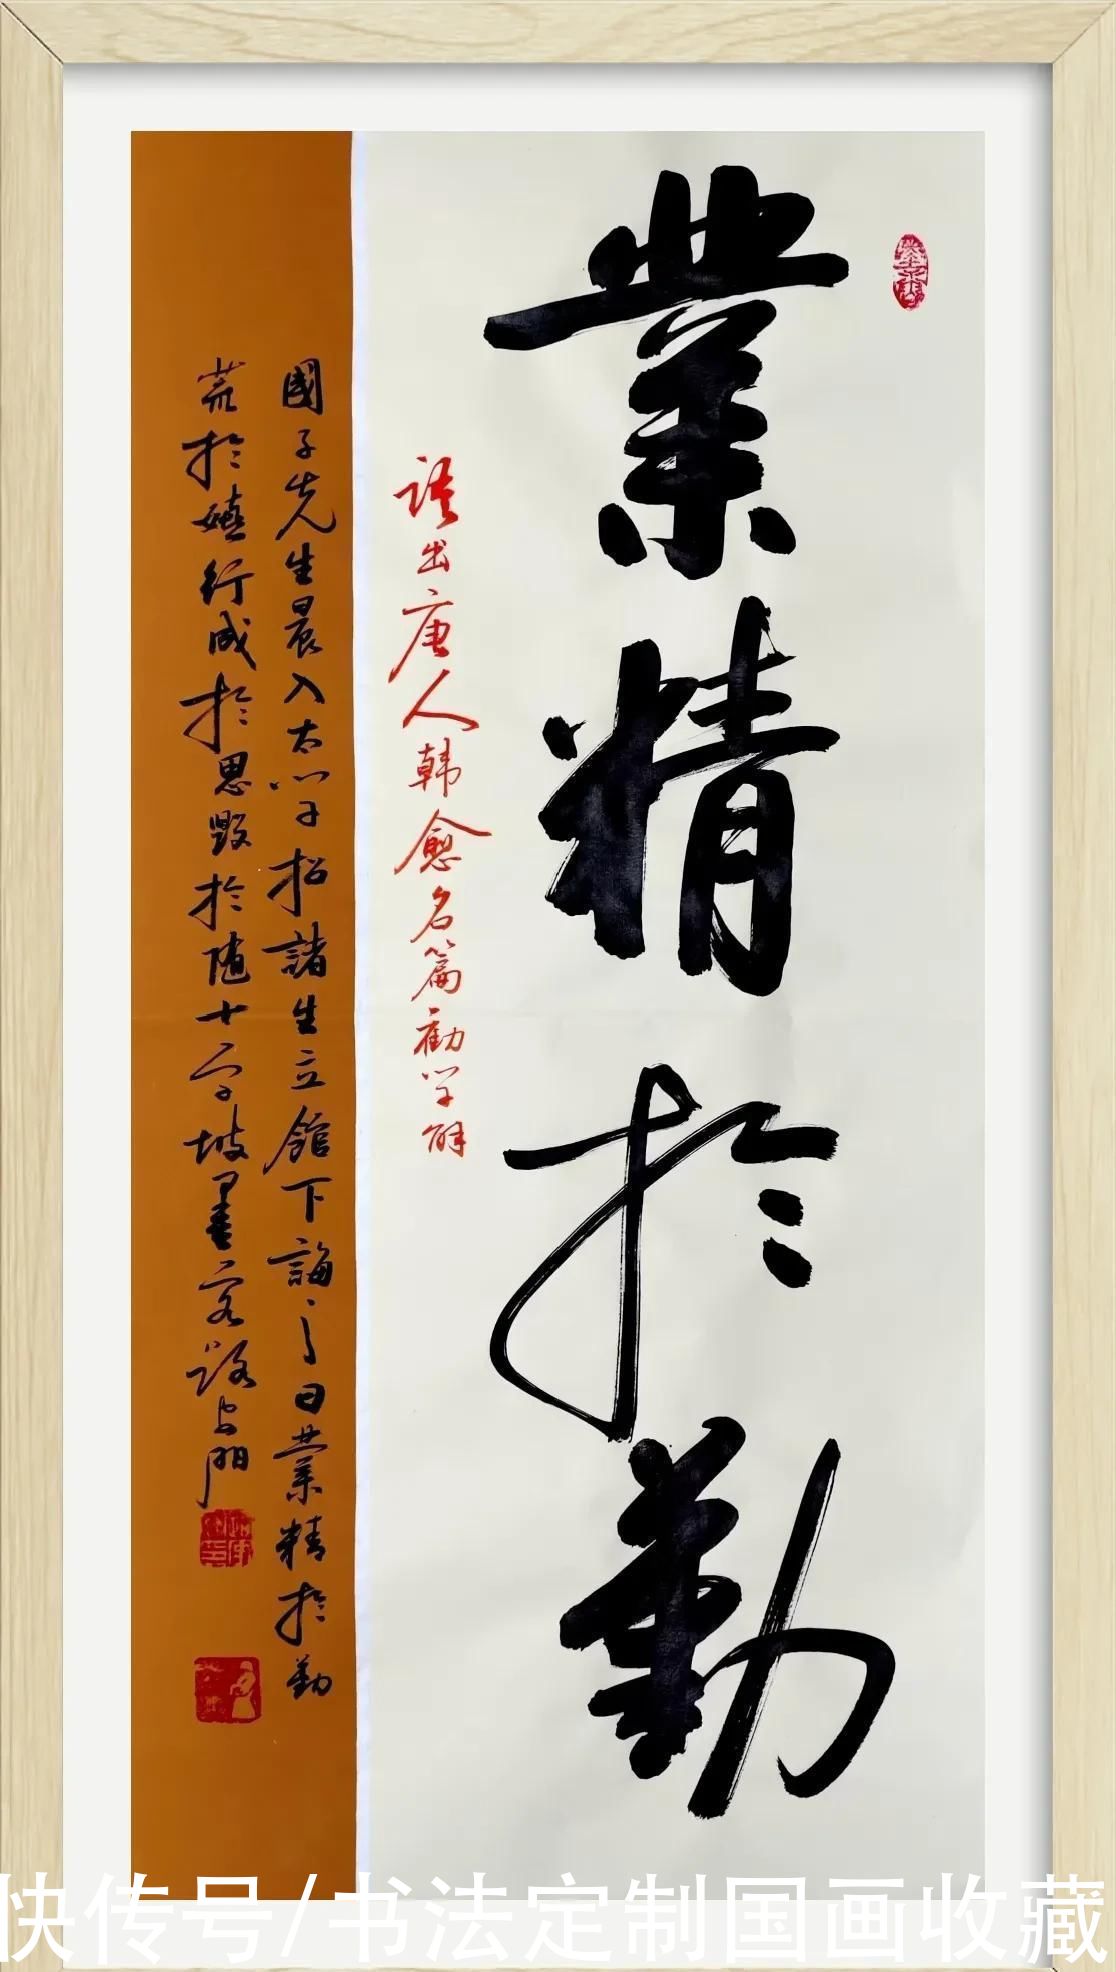 業精於勤
语出唐人韩愈名篇勸学解
國子先生晨入太学招諸生立館下誨之曰業精於勤
荒於嬉行成於思毀於随十字坡墨客路
快传号/书法定制国画收藏